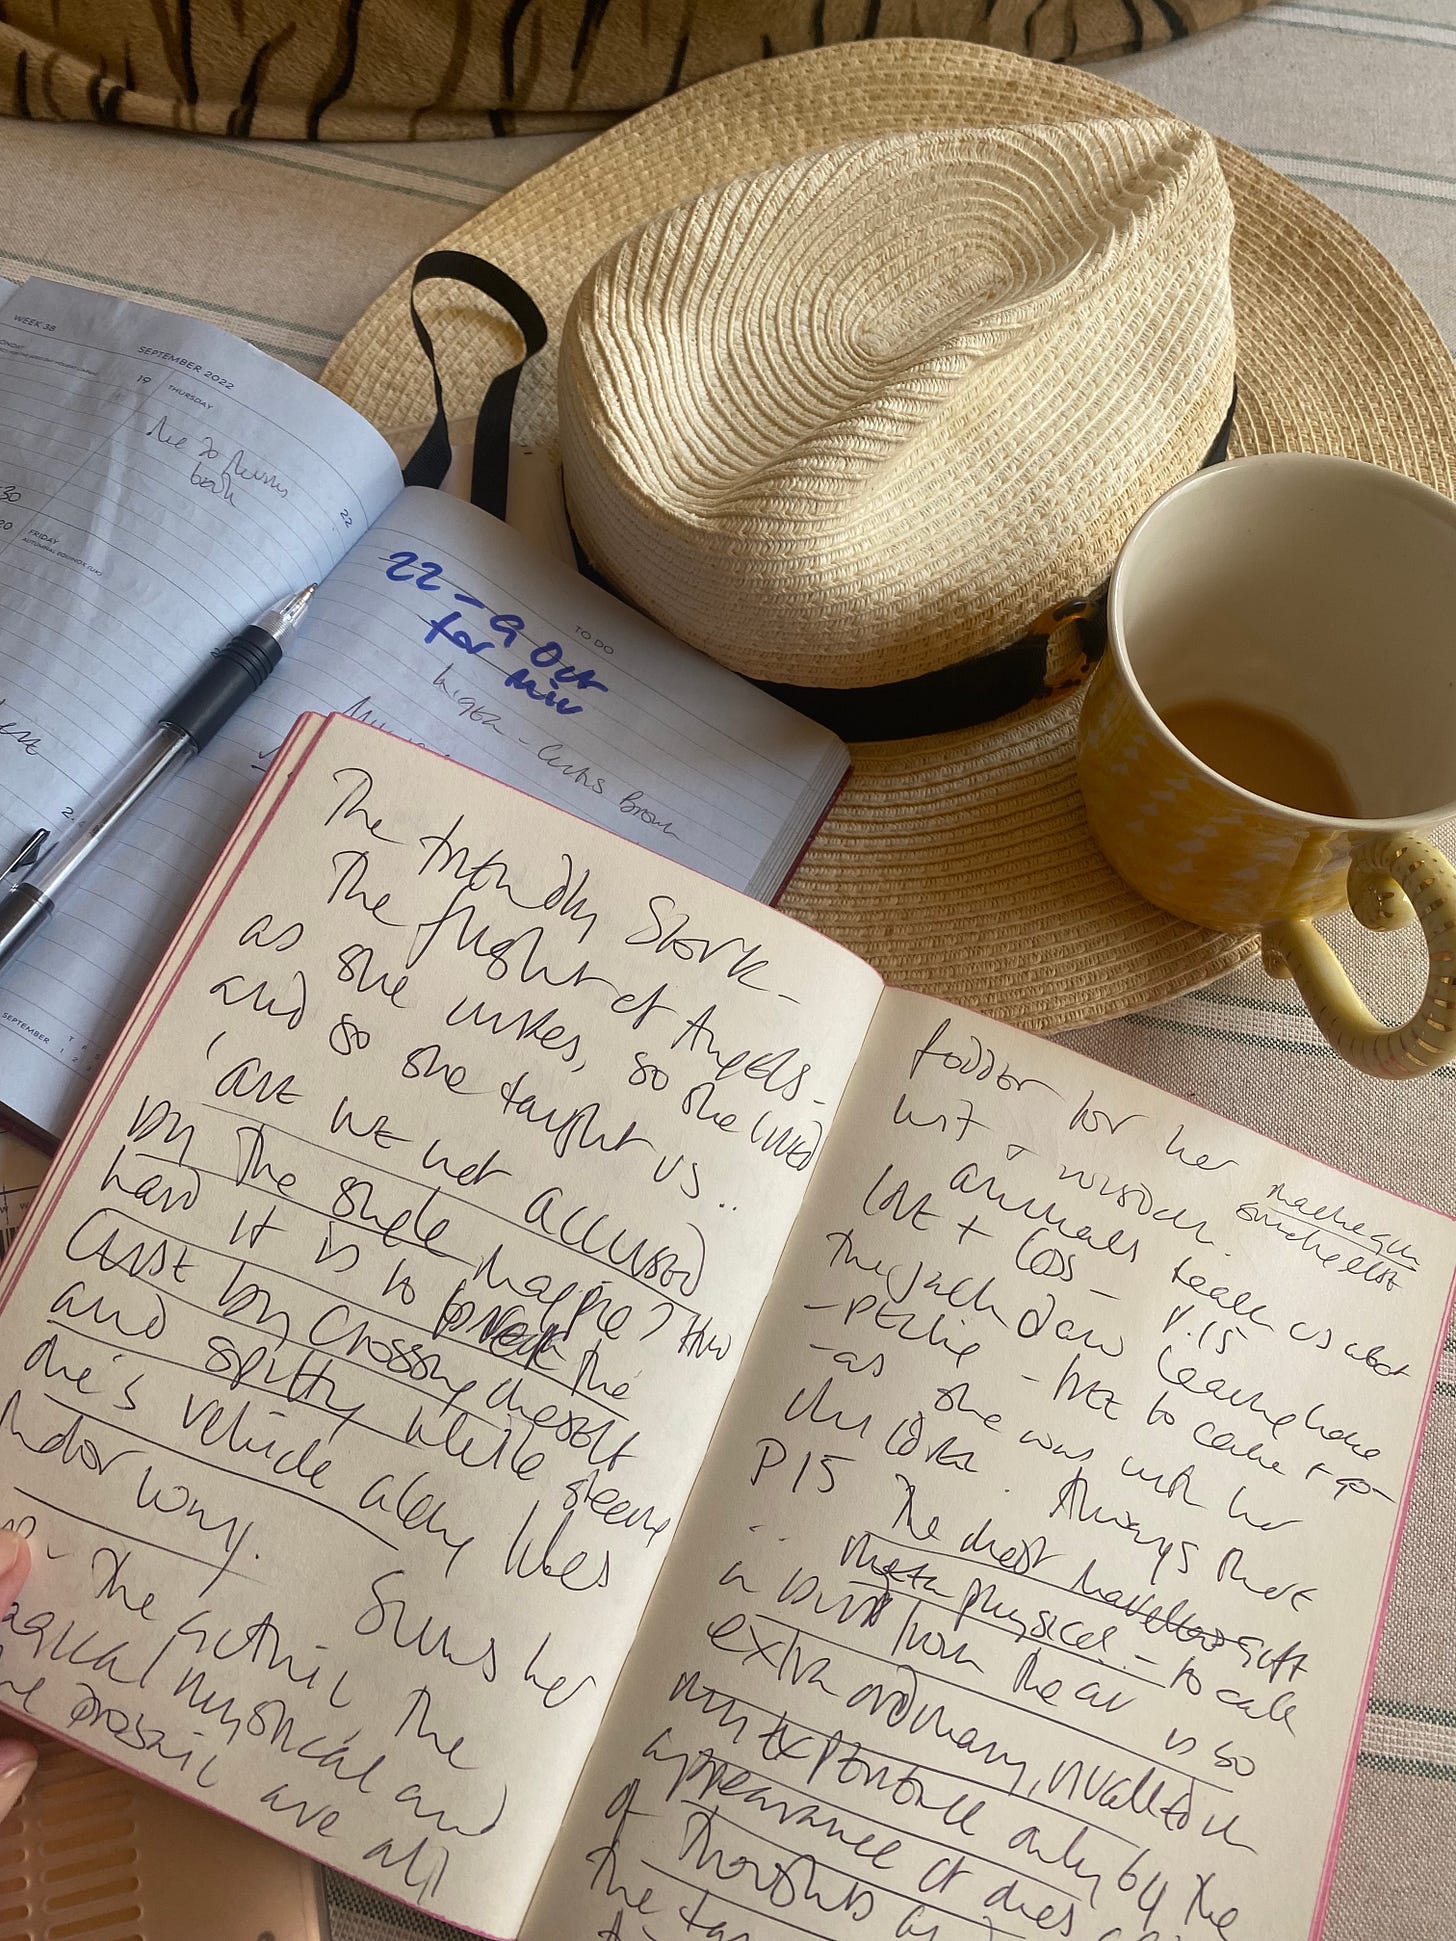 WEEK 38
SEPTEMBER 2022
19
THURSDAY
book
22
30
20
FRIDAY
AUTUMNAL EQUINOX (UK)
TO DO
22 - 9 Oct
for
Curtis Brown
SEPTEMBER
The friendly Stork -
The flight of Angels -
as she writes, so she lived
and so she taught us ..
'are we not accursed
by the single magpie? How
hard it is to break the
curse by crossing oneself
and spitting while steering
one's vehicle along
motor way.
Suns her
The the
magical mystical and
the prosaic are all
fodder for her
wit & wisdom.
animals teach us about
love + loss - P.15
the jackdaw leaving home
- free to come + go -
- as she was with her
children. Always there
P15 The most gift
..
metaphysical - to call
a bird from the air is so
extraordinary, rivalled in
my experience only by the
appearance of ones
of thoughts as
the